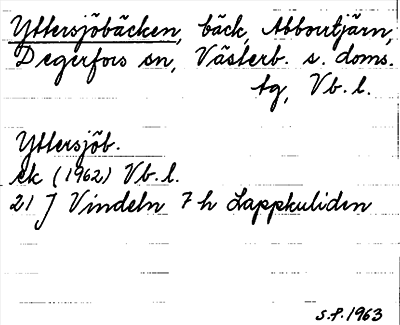 Yttersjöbäcken, bäck, Abborrtjärn,
Degerfors sn, Västerb. s. doms.
tg, Vb. l.
Yttersjöb.
ek (1962) Vb. l.
21 J Vindeln 7 h Lappkuliden
S.P. 1963